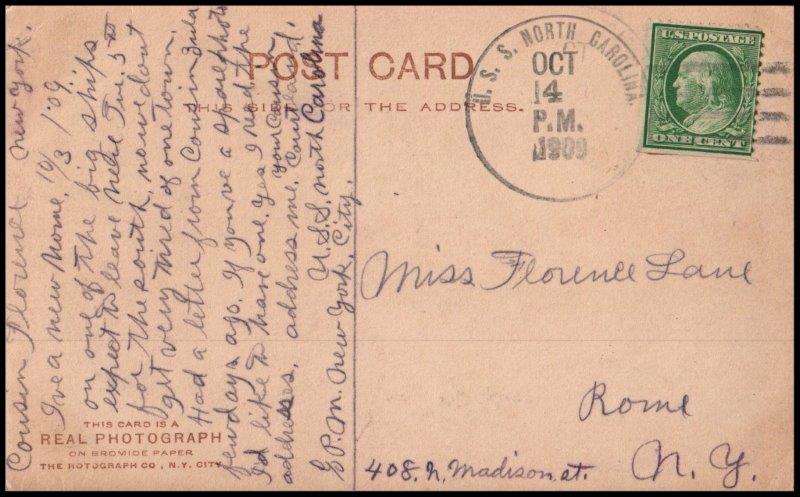 POST CARD
THIS SIDE FOR THE ADDRESS.
U. S. S. NORTH CAROLINA.
OCT
14
P.M.
1909
U.S. POSTAGE
ONE CENT
Cousin Florence New York.
I've a new home. 10/3 1'09.
on one of the big ships
expect to leave here Tu. 5 to
for the south, now don't
get very tired of one town.
Had a letter from Cousin Zula
few days ago. If you've a spare photo
I'd like to have one. yes I read the
addresses, address me, your Cousin
Courtland.
U.S.S. North Carolina
G.P.M. New York, City.
Miss Florence Lane
Rome
408. N. Madison. st. N. Y.
THIS CARD IS A
REAL PHOTOGRAPH
ON BROMIDE PAPER
THE ROTOGRAPH CO., N.Y. CITY